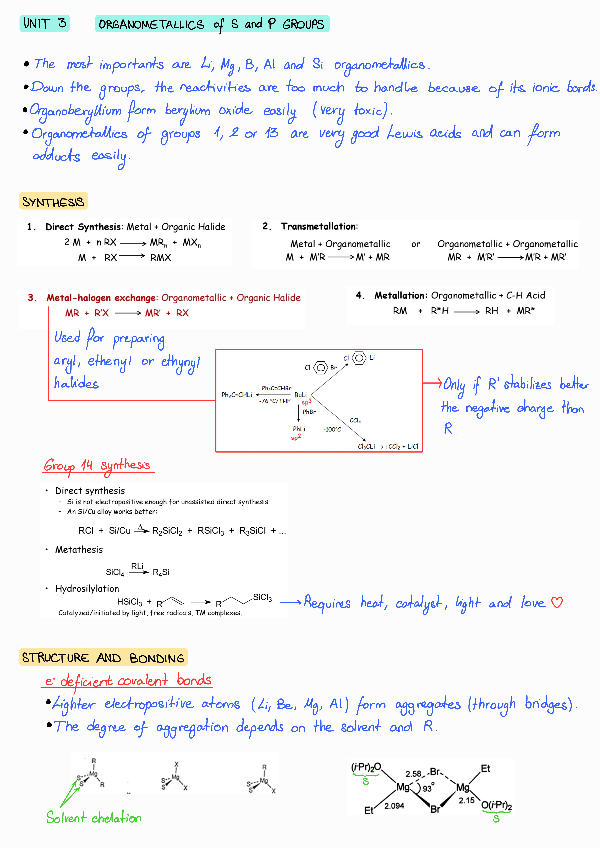 UNIT 3 ORGANOMETALLICS of S and P GROUPS
• The most importants are Li, Mg, B, Al and Si organometallics.
• Down the groups, the reactivities are too much to handle because of its ionic bonds.
• Organoberyllium form berylium oxide easily (very toxic).
• Organometallics of groups 1, 2 or 13 are very good Lewis acids and can form
adducts easily.
SYNTHESIS
1. Direct Synthesis: Metal + Organic Halide
2 M + n RX ⟶ MRn + MXn
M + RX ⟶ RMX
2. Transmetallation:
Metal + Organometallic or Organometallic + Organometallic
M + M'R ⟶ M' + MR MR + M'R' ⟶ M'R + MR'
3. Metal-halogen exchange: Organometallic + Organic Halide
MR + R'X ⟶ MR' + RX
4. Metallation: Organometallic + C-H Acid
RM + R*H ⟶ RH + MR*
Used for preparing
aryl, ethenyl or ethynyl
halides
Cl Br Cl Li
Ph2C=CHBr
Ph2C=CHLi BuLi
sp3
PhBr
PhLi
sp2
-100°C
CCl4
Cl3CLi → :CCl2 + LiCl
Only if R' stabilizes better
the negative charge than
R
Group 14 synthesis
• Direct synthesis
- Si is not electropositive enough for unassisted direct synthesis
- An Si/Cu alloy works better:
RCl + Si/Cu Δ⟶ R2SiCl2 + RSiCl3 + R3SiCl + ...
• Metathesis
RLi
SiCl4 ⟶ R4Si
• Hydrosilylation
HSiCl3 + R ⟶ R SiCl3
Catalyzed/initiated by light, free radicals, TM complexes.
→ Requires heat, catalyst, light and love ♡
STRUCTURE AND BONDING
e⁻ deficient covalent bonds
• Lighter electropositive atoms (Li, Be, Mg, Al) form aggregates (through bridges).
• The degree of aggregation depends on the solvent and R.
R S S Mg R
X S S Mg X
R S S Mg X
Solvent chelation
(i-Pr)2O 2.58 Br Et
S
Mg 93° Mg
Et 2.094 Br 2.15 O(i-Pr)2
S